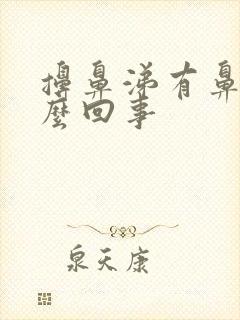 擤鼻涕有鼻
麽回事
泉天康